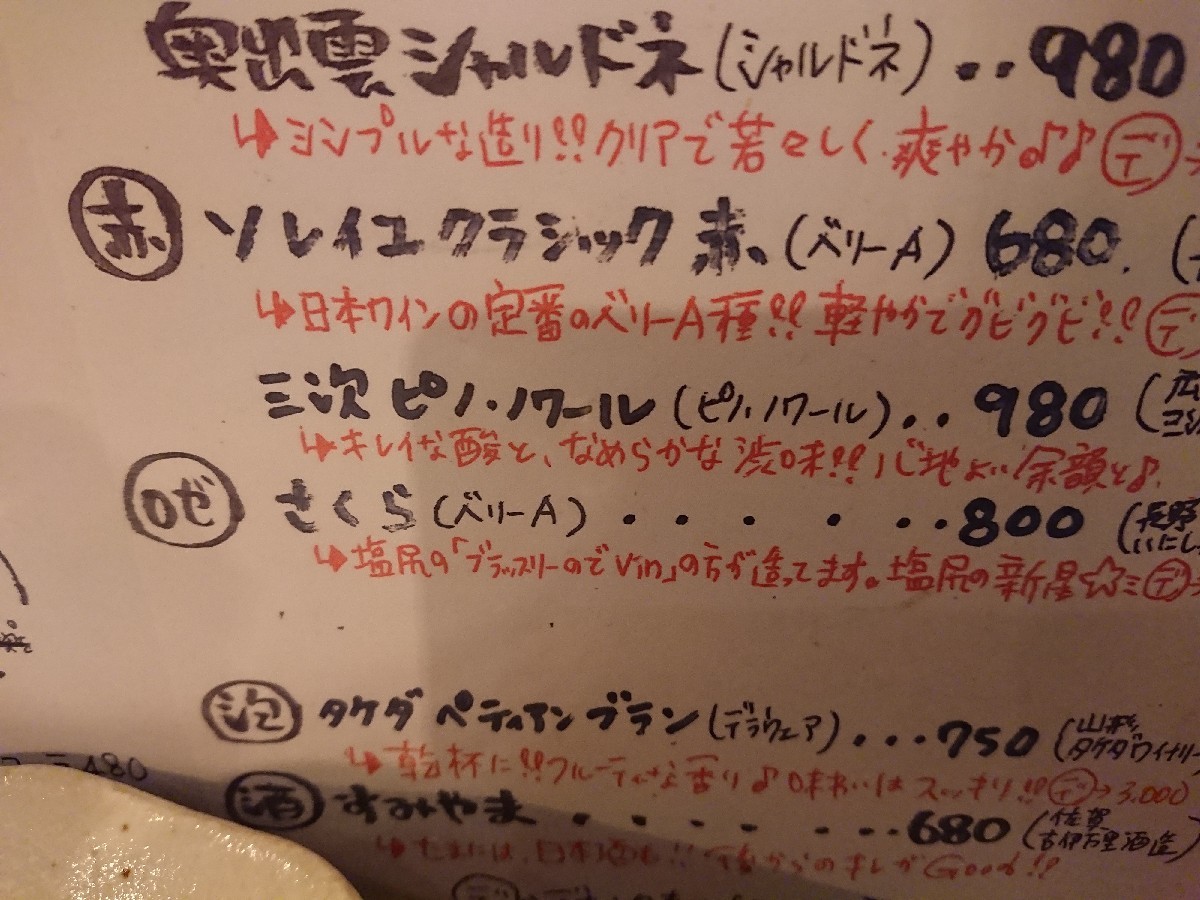 奥出雲シャルドネ(シャルドネ)‥980
↳シンプルな造り!!クリアで若々しく爽やか。♪♪ デ→
赤 ソレイユクラシック 赤、(ベリーA) 680. (
↳日本ワインの定番のベリーA種!!軽やかでグビグビ!! デ
三次 ピノ・ノワール(ピノ・ノワール)‥980 (広
↳キレイな酸と、なめらかな渋味!!心地よい余韻と♪
ロゼ さくら(ベリーA)・・・・・・800 (長野
↳塩尻の「ブラッスリーのでVin」の方が造ってます。塩尻の新星☆ミデ→
泡 タケダ ペティアンブラン(デラウェア)・・・750 (山形 タケダワイナリー
↳乾杯に!!フルーティな香り♪味わいはスッキリ!!デ→3,000
480
酒 すみやま・・・・・・・680 (佐賀 古伊万里酒造)
↳たまには、日本酒も!!後からのキレがGood!!